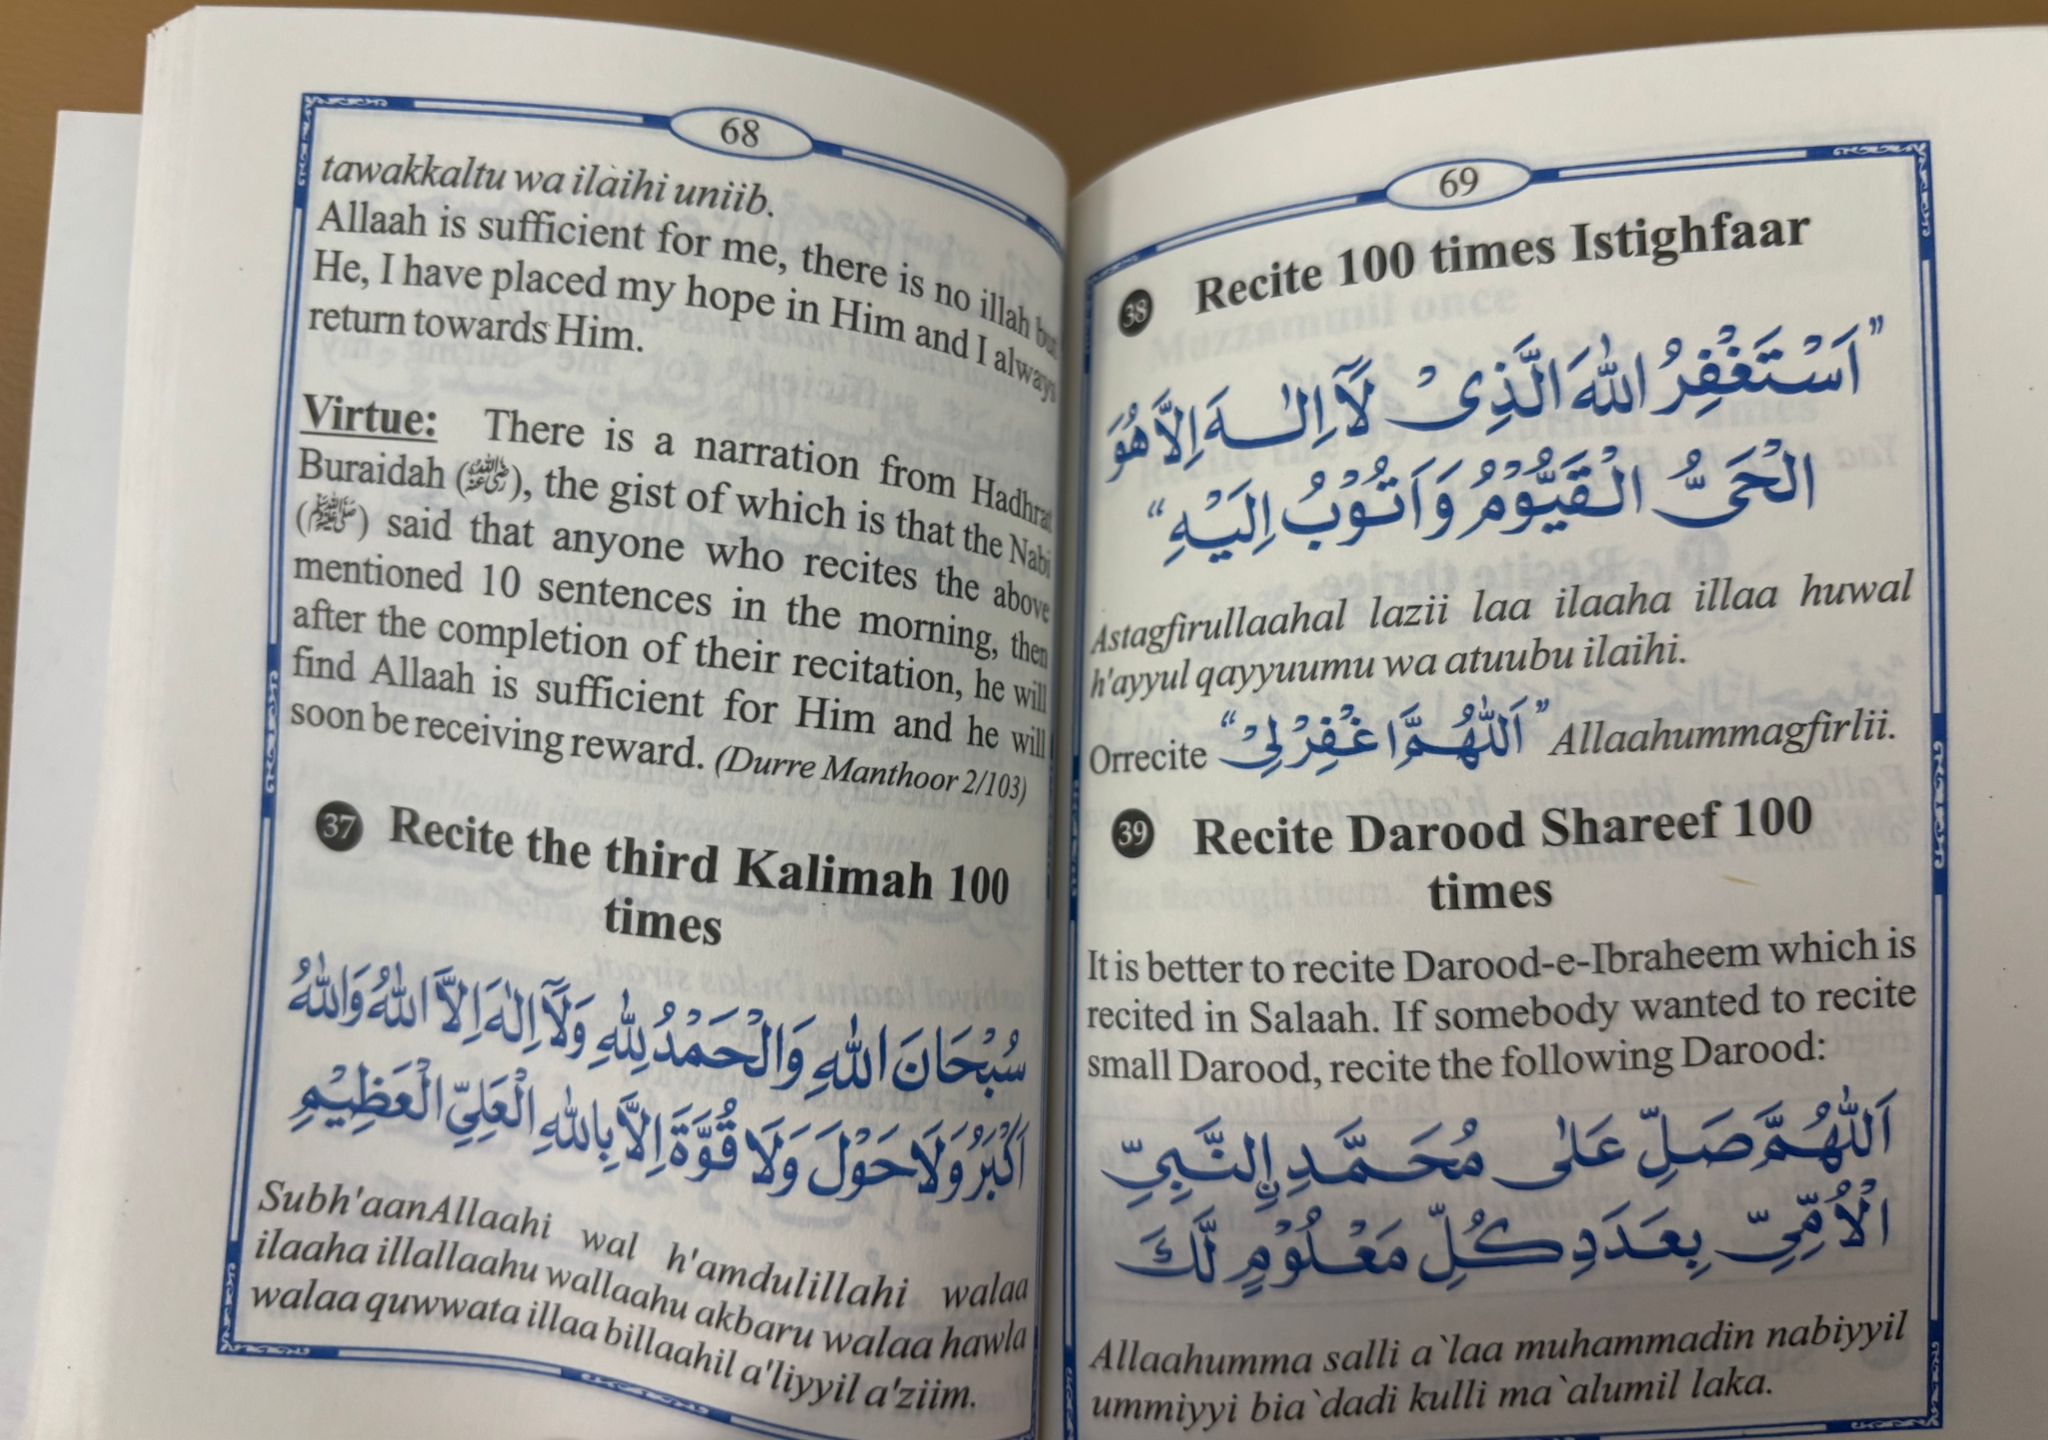 68
tawakkaltu wa ilaihi uniib.
Allaah is sufficient for me, there is no illah but
He, I have placed my hope in Him and I always
return towards Him.
Virtue: There is a narration from Hadhrat
Buraidah (رضي الله عنه), the gist of which is that the Nabi
(ﷺ) said that anyone who recites the above
mentioned 10 sentences in the morning, then
after the completion of their recitation, he will
find Allaah is sufficient for Him and he will
soon be receiving reward. (Durre Manthoor 2/103)
37 Recite the third Kalimah 100
times
سُبْحَانَ اللّٰهِ وَالْحَمْدُ لِلّٰهِ وَلَآ اِلٰهَ اِلَّا اللّٰهُ وَاللّٰهُ
اَكْبَرُ وَلَا حَوْلَ وَلَا قُوَّةَ اِلَّا بِاللّٰهِ الْعَلِيِّ الْعَظِيْمِ
Subh'aanAllaahi wal h'amdulillahi walaa
ilaaha illallaahu wallaahu akbaru walaa hawla
walaa quwwata illaa billaahil a'liyyil a'ziim.
69
38 Recite 100 times Istighfaar
”اَسْتَغْفِرُ اللّٰهَ الَّذِىْ لَآ اِلٰـهَ اِلَّا هُوَ
الْحَىُّ الْقَيُّوْمُ وَاَتُوْبُ اِلَيْهِ“
Astagfirullaahal lazii laa ilaaha illaa huwal
h'ayyul qayyuumu wa atuubu ilaihi.
Orrecite ”اَللّٰهُمَّ اغْفِرْلِيْ“ Allaahummagfirlii.
39 Recite Darood Shareef 100
times
It is better to recite Darood-e-Ibraheem which is
recited in Salaah. If somebody wanted to recite
small Darood, recite the following Darood:
اَللّٰهُمَّ صَلِّ عَلٰى مُحَمَّدِ ِۨالنَّبِيِّ
الْاُمِّيِّ بِعَدَدِ كُلِّ مَعْلُوْمٍ لَّكَ
Allaahumma salli a`laa muhammadin nabiyyil
ummiyyi bia`dadi kulli ma`alumil laka.